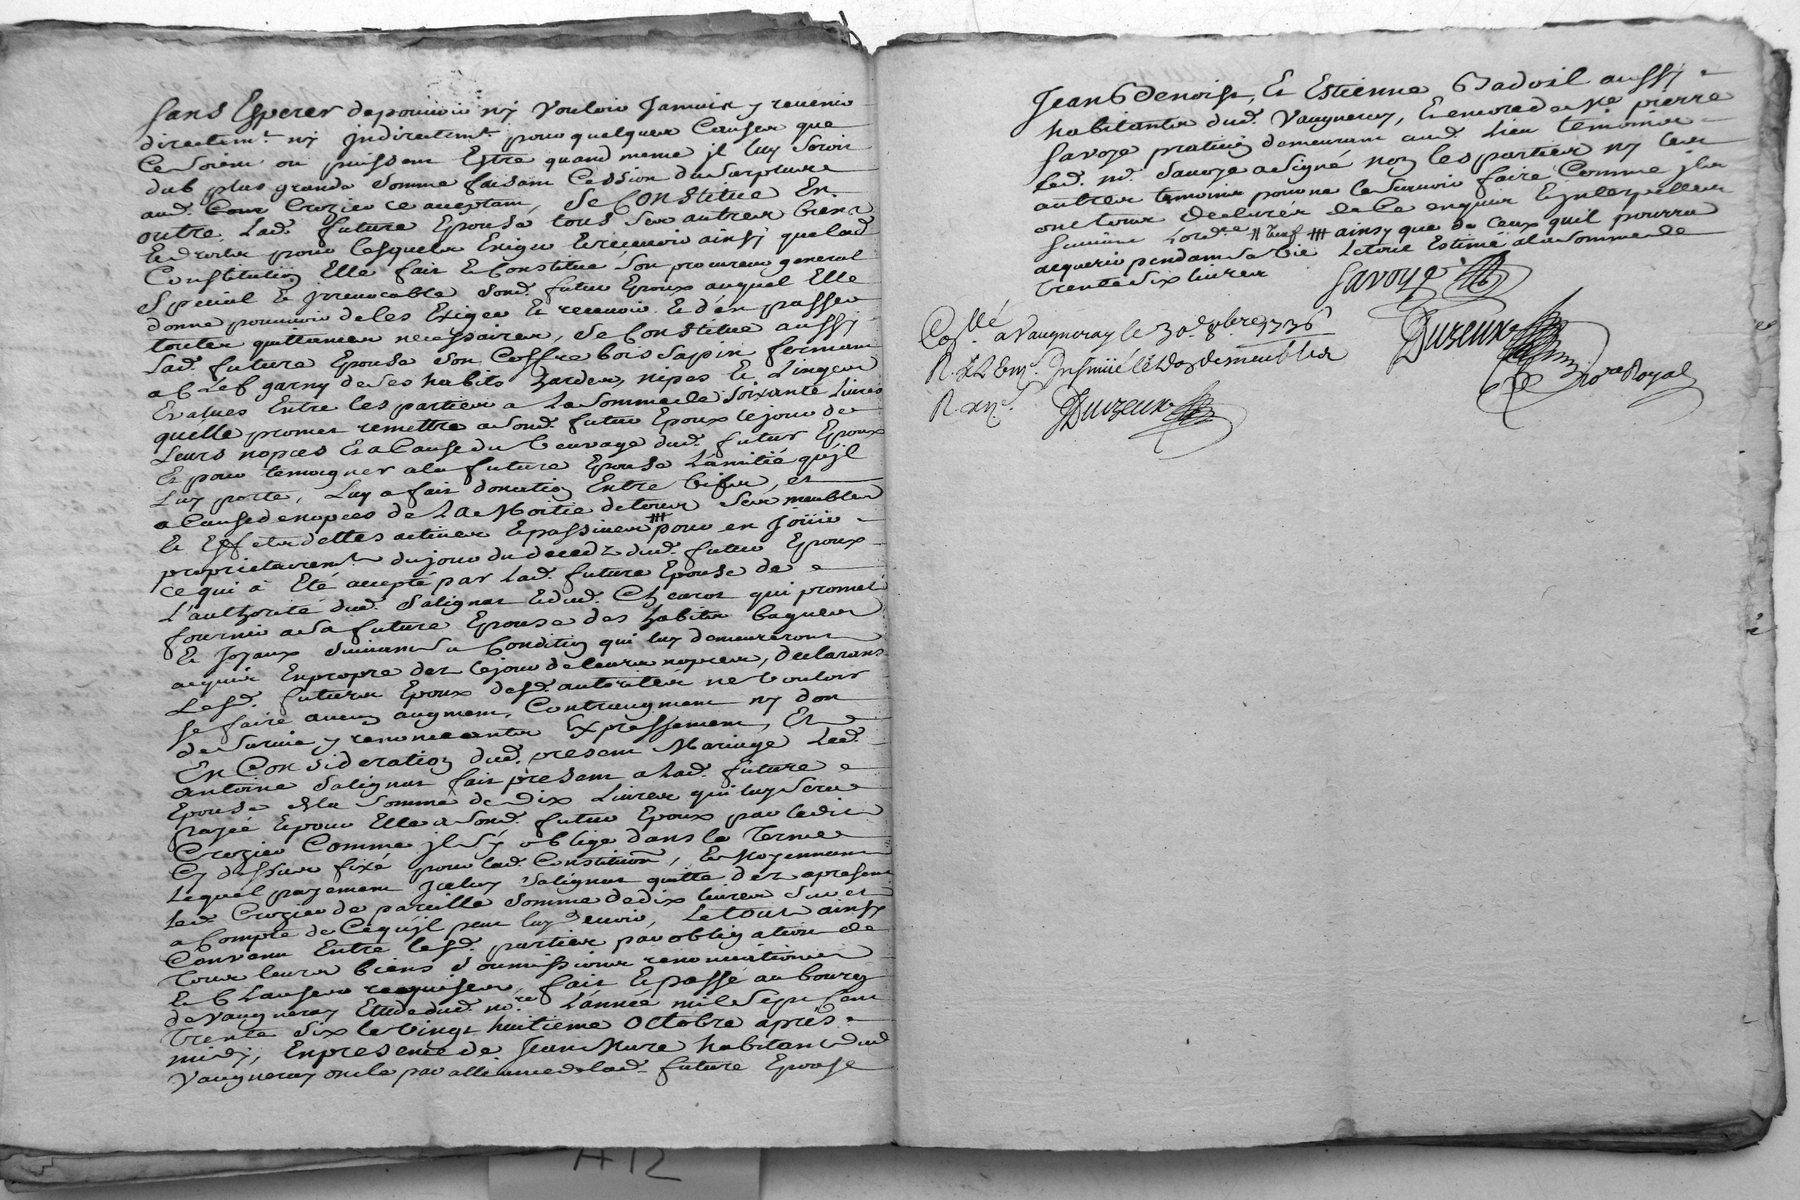 Sans Esperer de pouvoir ny vouloir Jamais y revenir
directem.t ny Indirectem.t pour quelques Causes que
Ce soient ou puissent Estre quand meme il luy seroit
dub plus grande somme faisant Cession du surplus
aud. Crozier ce acceptant, Se Constitue En
outre lad. future Epouse tous ses autres biens
Et droits pour lesquels Exiger Et recevoir ainsy que lad.
Constitution Elle fait Et Constitue son procureur general
Special Et irrevocable sond. futur Epoux auquel Elle
donne pouvoir de les Exiger Et recevoir Et d'en passer
toutes quittances necessaires, Se Constitue aussy
lad. future Epouse son Coffre bois sapin fermant
a Clef garny de ses habits hardes, nipes Et Linges
Evalues Entre les parties a la somme de soixante Livres
quelle promet remettre a sond. futur Epoux le jour de
leurs nopces Et a Cause du veuvage dud. futur Epoux
Et pour temoigner a la future Epouse l'amitié qu'il
luy porte, luy a fait donation Entre vifs, et
a Cause de nopces de La Moitie de tous ses meubles
Et Effets dettes actives Et passives # pour en Joüir
proprietairem.t du jour du decedz dud. futur Epoux
ce qui a Eté accepté par lad. future Epouse de
L'authorité dud. Salignat Et dud. qui promet
fournir a sa future Epouse des habits bagues
Et Joyaux suivant sa Condition qui luy demeureront
acquis En propre dez le jour de leurs nopces, declarans
Lesd. futurs Epoux desd. autorités ne vouloir
se faire aucun augment, Contraugment ny don
de survie y renonceants Expressement, Et
En Consideration dud. present Mariage led.
antoine Salignat fait present a lad. future
Epouse de la somme de Dix Livres qui luy sera
payée Et pour Elle a sond. futur Epoux par ledit
Crozier Comme il s'y oblige dans le Terme
Cy dessus fixé pour lad. Constitution, Et Moyennant
lequel payement Iceluy Salignat quitte dez a present
led. Crozier de pareille somme de dix livres sur et
a Compte de Ce qu'il peut luy devoir, Le tout ainsy
Convenu Entre lesd. parties par obligation de
Tous leurs biens soumissions renonciations
Et Clauses requises, fait Et passé au bourg
de Vaugneray Etude dud. no.re L'année mil Sept Cent
Trente six le vingt huitieme Octobre après
midy, En presence de Jean Mure habitant dud.
Vaugneray oncle par alliance de lad. future Epouse
Jean Benoist, Et Estienne Badoil aussy
habitants dud. Vaugneray, Et encore de Me pierre
Savoye praticien demeurant aud. Lieu temoins
Led. Mr. Savoye a signé non les parties ny les
autres temoins pour ne le sçavoir faire Comme ils
ont tous declarés de Ce enquis Et interpellés
suivant l'ord.ce # ainsy que de Ceux quil pourra
acquerir pendant sa Vie Le tout Estimé a la somme de
trente six livres Savoye
Con.llé a Vaugneray le 30e 8bre 1736
R. Insinüé le Don de meubles
R.
Duzeux
Duzeux
no.re Royal
A12